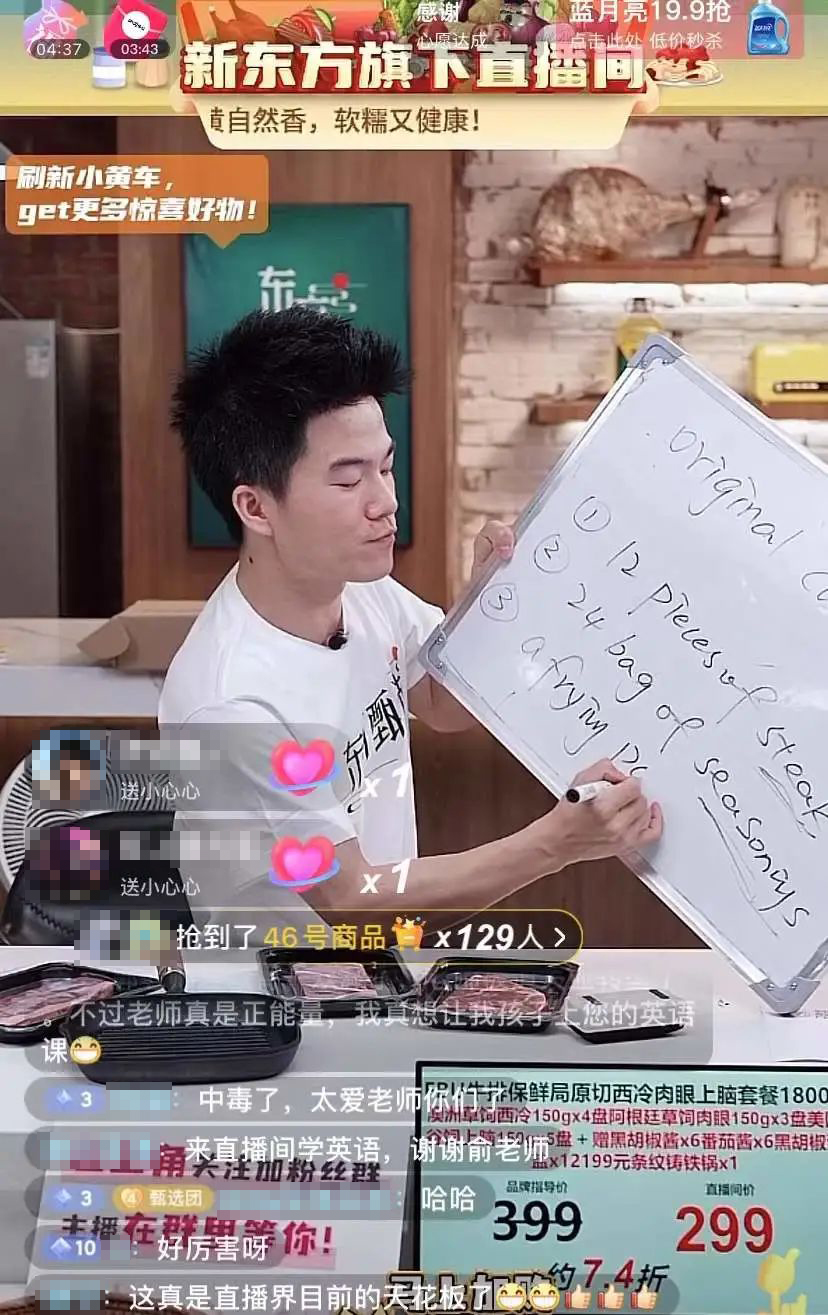 04:37
03:43
感谢
心愿达成
蓝月亮19.9抢
点击此处 低价秒杀
新东方旗下直播间
黄自然香，软糯又健康！
刷新小黄车，
get更多惊喜好物！
东
original
① 12 pieces of steak
② 24 bag of seasonings
③ a frying pa
东 甄
送小心心
x 1
送小心心
x 1
抢到了 46号商品 x129人 >
不过老师真是正能量，我真想让我孩子上您的英语
课😁
3 ： 中毒了，太爱老师你们了
： 来直播间学英语，谢谢俞老师
3 4 甄选团 ： 哈哈
10 ： 好厉害呀
： 这真是直播界目前的天花板了😁😁👍👍👍
关注加粉丝群
主播在群里等你！
牛排保鲜局原切西冷肉眼上脑套餐1800
澳洲草饲西冷150gx4盘阿根廷草饲肉眼150gx3盘美
谷饲上脑150gx5盘 + 赠黑胡椒酱x6番茄酱x6黑胡椒
x12199元条纹铸铁锅x1
品牌指导价
399
直播间价
299
约7.4折